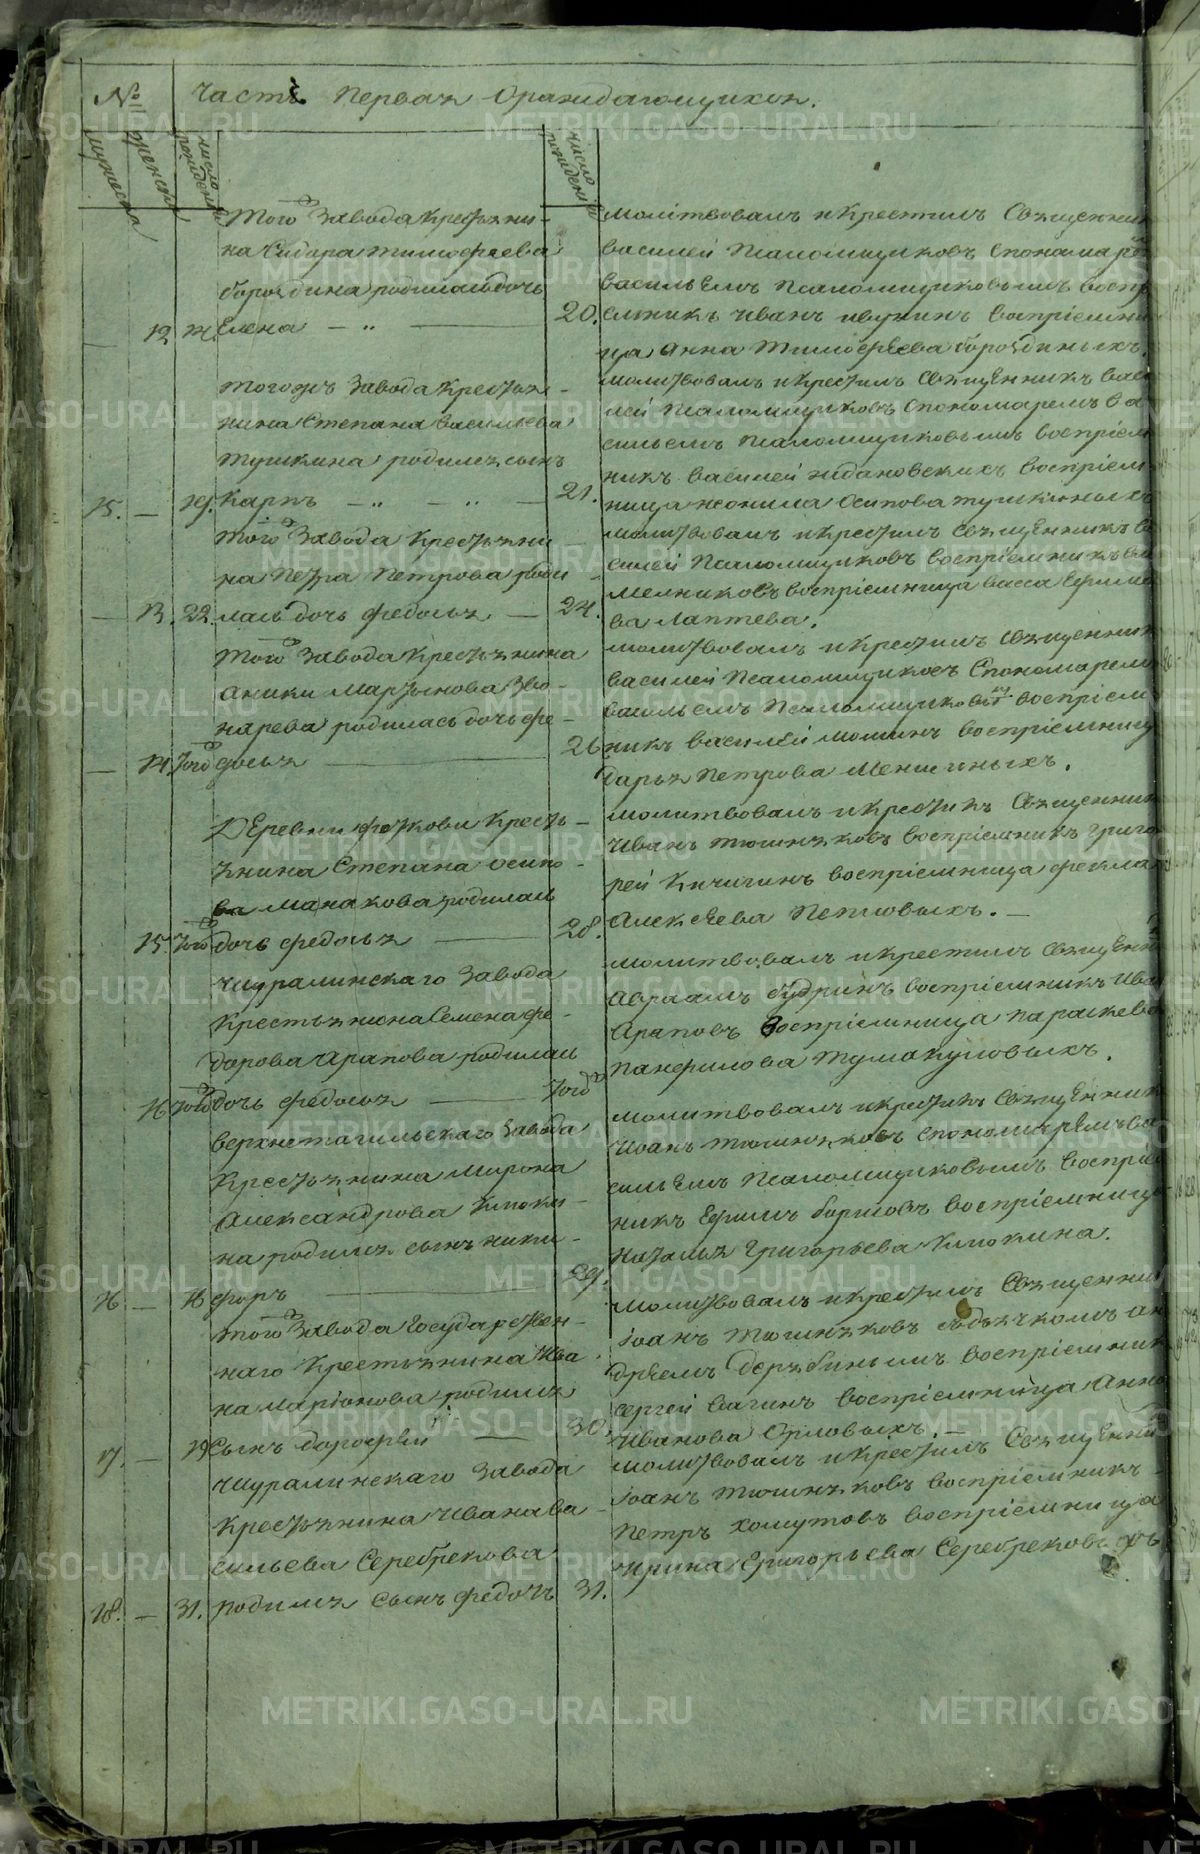 № Часть Первая О раждающихся.
мужеска
женска
число рождения
число рождения
Того Завода Крестьяни-
на Сидора Тимофеева
бороздина родилась дочь
12 Ж. Елена — „ — 20.
молитвовалъ и Крестилъ Священник
василей Псаломщиковъ Спонамарем
васильемъ Псаломщиковымъ воспр
емникъ Иванъ воспріемни
ца Анна Тимофеева бороздиныхъ.
Тогожъ Завода Крестья-
нина Степана Васильева
Тушкина родился сынъ
15. — 19. Карпъ — „ — „ — 21.
молитвовалъ и Крестилъ Священникъ васи
лей Псаломщиковъ Спономаремъ ва
сильемъ Псаломщиковымъ воспріем
никъ василей ждановскихъ воспріем
ница Осипова тушкиныхъ
Того Завода Крестьяни
на Петра Петрова роди
— 13. 22. лась дочь федосья — 24.
молитвовалъ и Крестилъ Священникъ ва
силей Псаломщиковъ воспріемникъ
мелниковъ воспріемница васса Ефимо
ва Лаптева.
Того Завода Крестьянина
Аники Мартынова Зво-
нарева родилась дочь фе-
— 14. Того досья — 26.
молитвовалъ и Крестилъ Священник
василей Псаломщиковъ Спономарем
васильемъ Псаломщиковым воспріем
никъ василей воспріемница
дарья Петрова Меншиныхъ.
Деревни Кресть-
янина Степана осипо-
ва Манакова родилась
15. Того дочь федосья — 28.
молитвовалъ и Крестилъ Священник
Иванъ воспріемникъ Григо
рей Кичигинъ воспріемница фекла
Алексеева Петровыхъ. —
Шуралинскаго Завода
Крестьянина Семена фе-
дорова Арапова родилась
16. Того дочь федосья — Того
молитвовалъ и Крестилъ Священн
Авраамъ Будринъ воспріемникъ Ива
Араповъ воспріемница параскева
панфилова Тумакуловыхъ.
верхнетагильскаго Завода
Крестьянина Мирона
Александрова Клюки-
на родился сынъ ники-
16. — 18 форъ — 29.
молитвовалъ и Крестилъ Священник
Иоанъ спономаремъ ва
сильемъ Псаломщиковымъ воспріем
никъ Ефимъ воспріемница
Наталья Григорьева Клюкина.
Того Завода Государствен-
наго Крестьянина Ива
на Ларіонова родился
17. — 19 Сынъ дорофей — 30.
молитвовалъ и Крестилъ Священник
Іоанъ содьячкомъ ан
дреемъ дерябинымъ воспріемник
Сергей вагинъ воспріемница Анна
Иванова Орловыхъ. —
Шуралинскаго Завода
Крестьянина Ивана ва
сильева Серебрекова
18. — 31. родился Сынъ федотъ 31.
молитвовалъ и Крестилъ Священник
Іоанъ воспріемникъ
Петръ хомутовъ воспріемница
Ирина Григорьева Серебрековыхъ